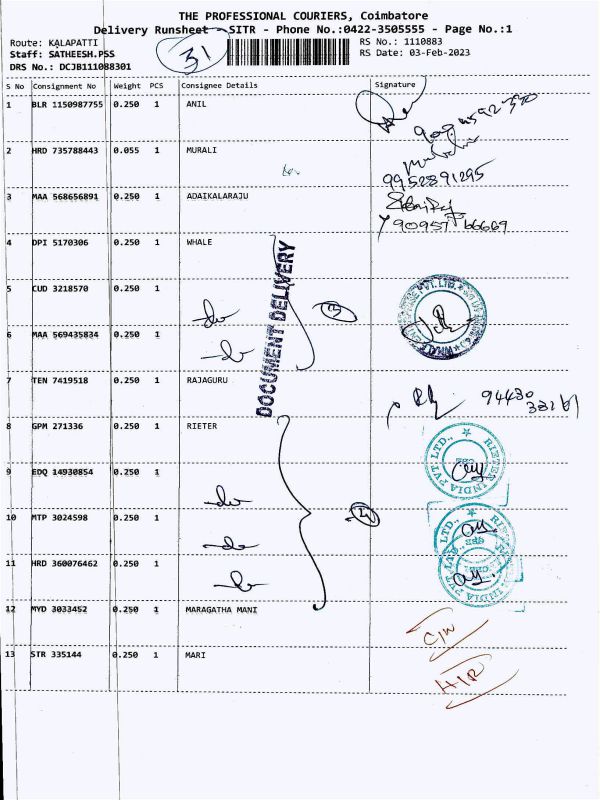 THE PROFESSIONAL COURIERS, Coimbatore
Delivery Runsheet - SITR - Phone No.:0422-3505555 - Page No.:1
Route: KALAPATTI
Staff: SATHEESH.PSS
DRS No.: DCJB111088301
31
RS No.: 1110883
RS Date: 03-Feb-2023
S No Consignment No Weight PCS Consignee Details Signature
1 BLR 1150987755 0.250 1 ANIL
2 HRD 735788443 0.055 1 MURALI
9952891295
3 MAA 568656891 0.250 1 ADAIKALARAJU
9095766669
4 DPI 5170306 0.250 1 WHALE
DOCUMENT DELIVERY
5 CUD 3218570 0.250 1
6 MAA 569435834 0.250 1
7 TEN 7419518 0.250 1 RAJAGURU
8 GPM 271336 0.250 1 RIETER
RIETER INDIA PVT LTD.,
9 EDQ 14930854 0.250 1
10 MTP 3024598 0.250 1
11 HRD 360076462 0.250 1
12 MYD 3033452 0.250 1 MARAGATHA MANI
13 STR 335144 0.250 1 MARI